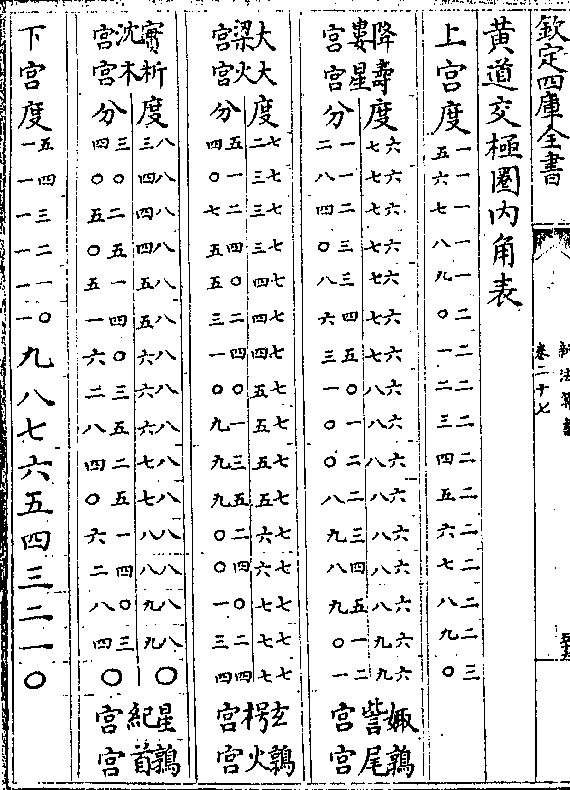 欽定四庫全書
卷二十七
黃道交極圈内角表
上宮度 一五 一六 一七 一八 一九 二〇 二一 二二 二三 二四 二五 二六 二七 二八 二九 三〇
降婁宮 壽星宮
度 六七 六七 六七 六七 六七 六七 六七 六八 六八 六八 六八 六八 六八 六八 六九 六九
分 一二 一八 二四 三〇 三八 四六 五三 〇一 一〇 二〇 二八 三九 四八 五九 一〇 二一
娵訾宮 鶉尾宮
大梁宮 大火宮
度 七二 七三 七三 七三 七四 七四 七四 七五 七五 七五 七五 七六 七六 七七 七七 七七
分 五四 一〇 二七 四五 〇五 二三 四一 〇〇 一九 三九 五九 二〇 四〇 〇一 二三 四四
玄枵宮 鶉火宮
實沈宮 析木宮
度 八三 八四 八四 八四 八五 八五 八六 八六 八六 八七 八七 八八 八八 八九 八九 〇
分 三四 〇〇 二五 五〇 一五 四一 〇六 三二 五八 二四 五〇 一六 四二 〇八 三四 〇
星紀宮 鶉首宮
下宮度 一五 一四 一三 一二 一一 一〇 九 八 七 六 五 四 三 二 一 〇